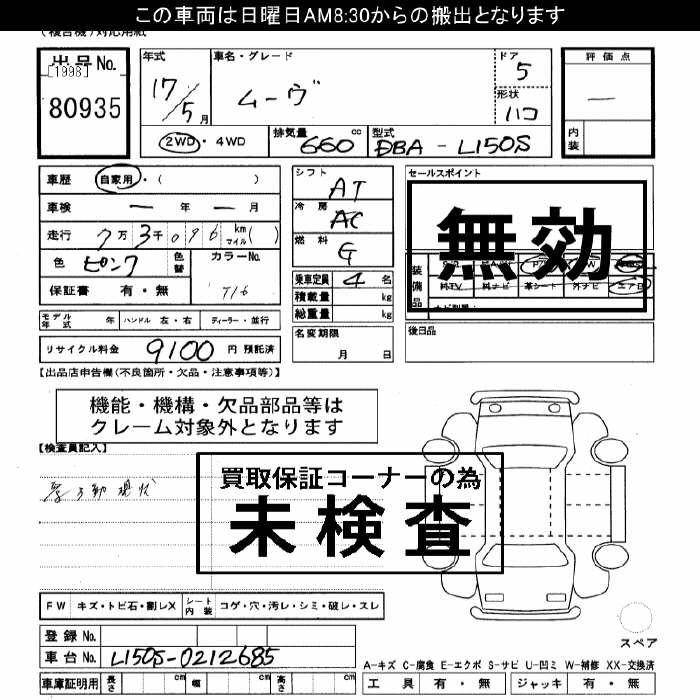 この車両は日曜日AM8:30からの搬出となります
(複合機)対応用紙
出品No.
[1998]
80935
年式
17/5月
車名・グレード
ムーヴ
ドア
5
形状
ハコ
評価点
―
内装
2WD・4WD
排気量
660 cc
型式
DBA - L150S
車歴 自家用・( )
車検 ― 年 ― 月
走行 7万3千096 km マイル( )
色 ピンク 色替
カラーNo.
T16
保証書 有・無
シフト
AT
冷房
AC
燃料
G
乗車定員 4 名
積載量 kg
総重量 kg
名変期限
月 日
セールスポイント
無効
装備品
純TV 純ナビ 革シート 外ナビ エアB
後日品
モデル年式 年 ハンドル 左・右 ディーラー・並行
リサイクル料金 9100 円 預託済
【出品店申告欄(不良箇所・欠品・注意事項等)】
機能・機構・欠品部品等は
クレーム対象外となります
【検査員記入】
買取保証コーナーの為
未検査
FW キズ・トビ石・割レX シート内装 コゲ・穴・汚レ・シミ・破レ・スレ
登録No.
車台No. L150S-0212685
車庫証明用 長さ cm 幅 cm 高さ cm
スペア
A-キズ C-腐食 E-エクボ S-サビ U-凹ミ W-補修 XX-交換済
工具 有・無 ジャッキ 有・無